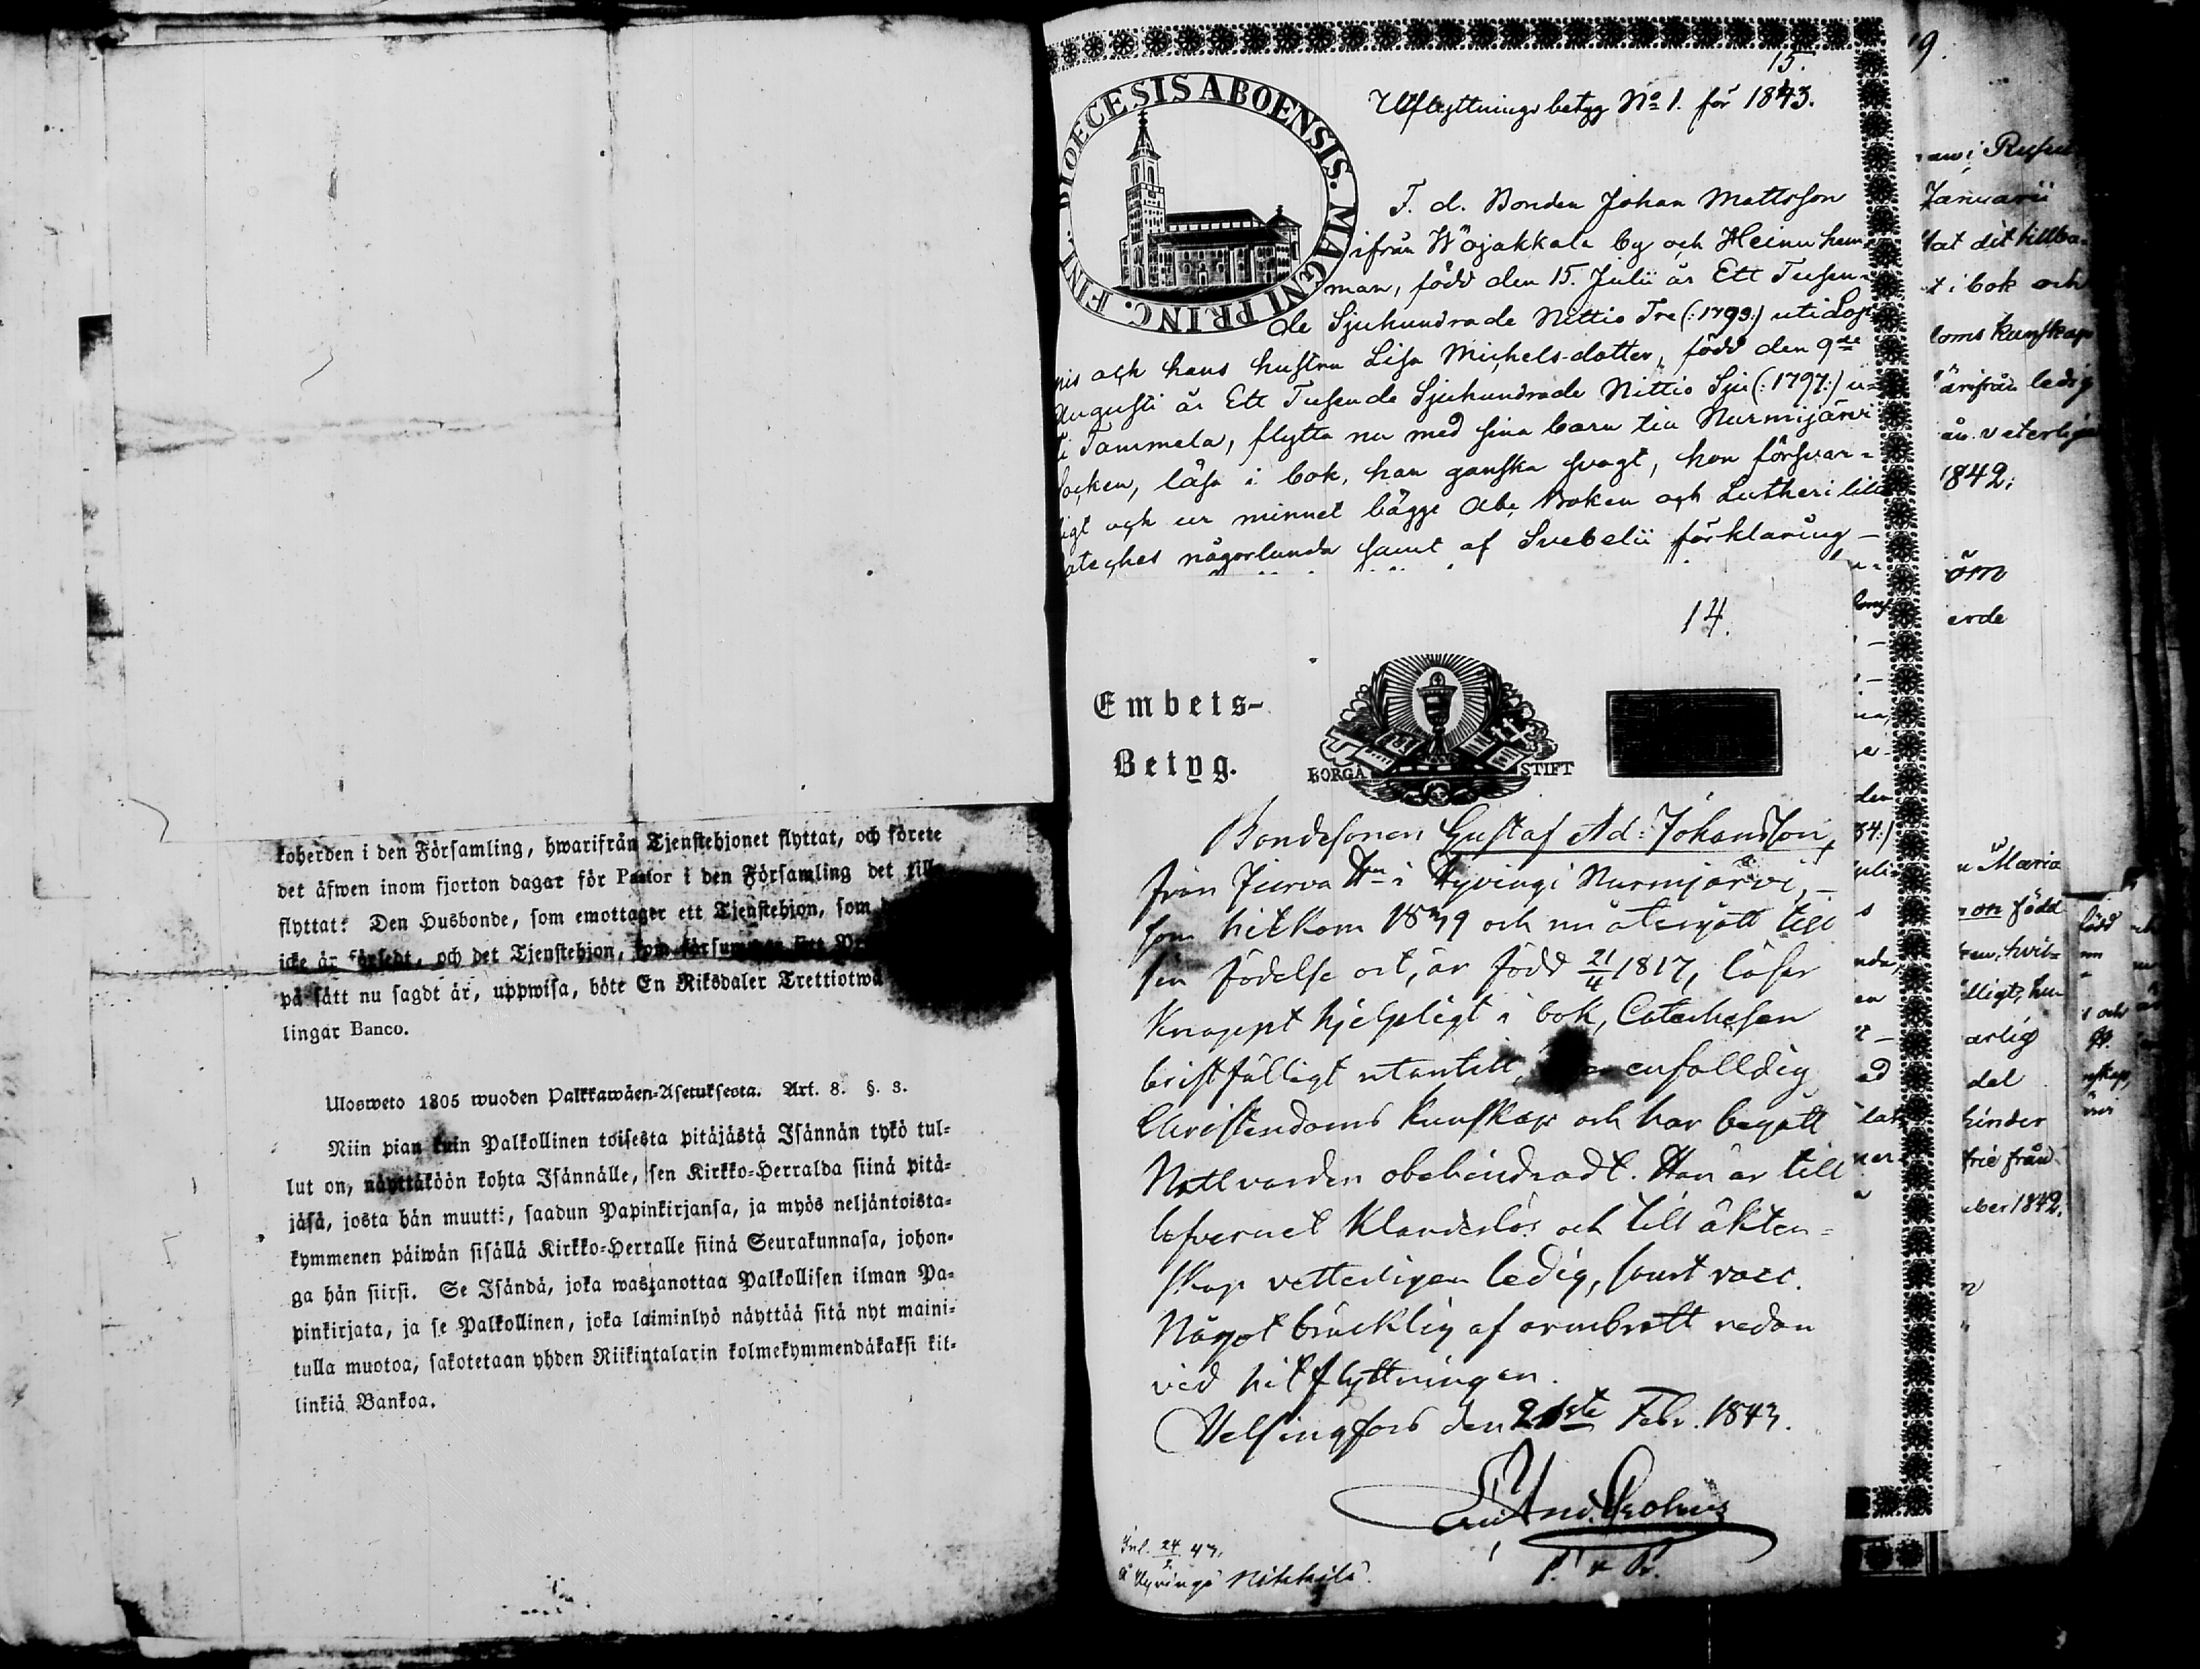 koherden i den Församling, hwarifrån Tjenstehjonet flyttat, och förete
det äfwen inom fjorton dagar för Pastor i den Församling det till
flyttat: Den Husbonde, som emottager ett Tjenstehjon, som
icke är försedt, och det Tjenstehjon, som försummar sitt
på sätt nu sagdt är, uppwisa, böte En Riksdaler Trettiotwå
lingar Banco.
Ulosweto 1805 wuoden Palkkawäen-Asetuksesta. Art. 8. §. 3.
Niin pian kuin Palkollinen toisesta pitäjästä Isännän tykö tul-
lut on, näyttäköön kohta Isännälle, sen Kirkko-Herralda siinä pitä-
jäsä, josta hän muutti, saadun Papinkirjansa, ja myös neljäntoista-
kymmenen päiwän sisällä Kirkko-Herralle siinä Seurakunnasa, johon-
ga hän siirsi. Se Isändä, joka wastanottaa Palkollisen ilman Pa-
pinkirjata, ja se Palkollinen, joka laiminlyö näyttää sitä nyt maini-
tulla muotoa, sakotetaan yhden Riikintalarin kolmekymmendäkaksi kil-
linkiä Bankoa.
15.
DIOECESIS ABOENSIS. MAGNI PRINC. FINL.
Utflyttnings betyg No 1. för 1843.
F. d. Bonden Johan Mattsson
ifrån Wöjakkala by och Heinu hem-
man, född den 15. Julii år Ett Tusen-
de Sjuhundrade Nittio Tre (:1793:) uti Lop-
pis och hans hustru Lisa Michels-dotter, född den 9de
Augusti år Ett Tusende Sjuhundrade Nittio Sju (:1797:) u-
ti Tammela, flytta nu med sina barn till Nurmijärvi
Socken, läsa i bok, han ganska svagt, hon försvar-
ligt och ur minnet bägge Abc Boken och Lutheri lilla
Cateches någorlunda samt af Svebelii förklaring
14.
Embets-
Betyg.
BORGÅ STIFT
Bondesonen Gustaf Ad: Johansson,
från Jurva Hn i Hyvinge i Nurmijärvi,
som hitkom 1839 och nu återgått till
sin födelse ort, är född 21/4 1817, läser
knappt hjelpligt i bok, Catechesen
bristfälligt utantill, enfalldig
Christendoms kunskap och har begått
Nattvarden obehindradt. Han är till
lefvernet klanderlös och till äkten-
skap vetterligen ledig, samt vacc.
Något bräcklig af armbrott redan
vid hitflyttningen.
Helsingfors den 21ste Febr. 1843.
Inl. 24/2 43.
9.
Januarii
tat dit tillba-
t i bok och
doms kunskap
härifrån ledig
1842.
Maria
född
hinder
ber 1842.